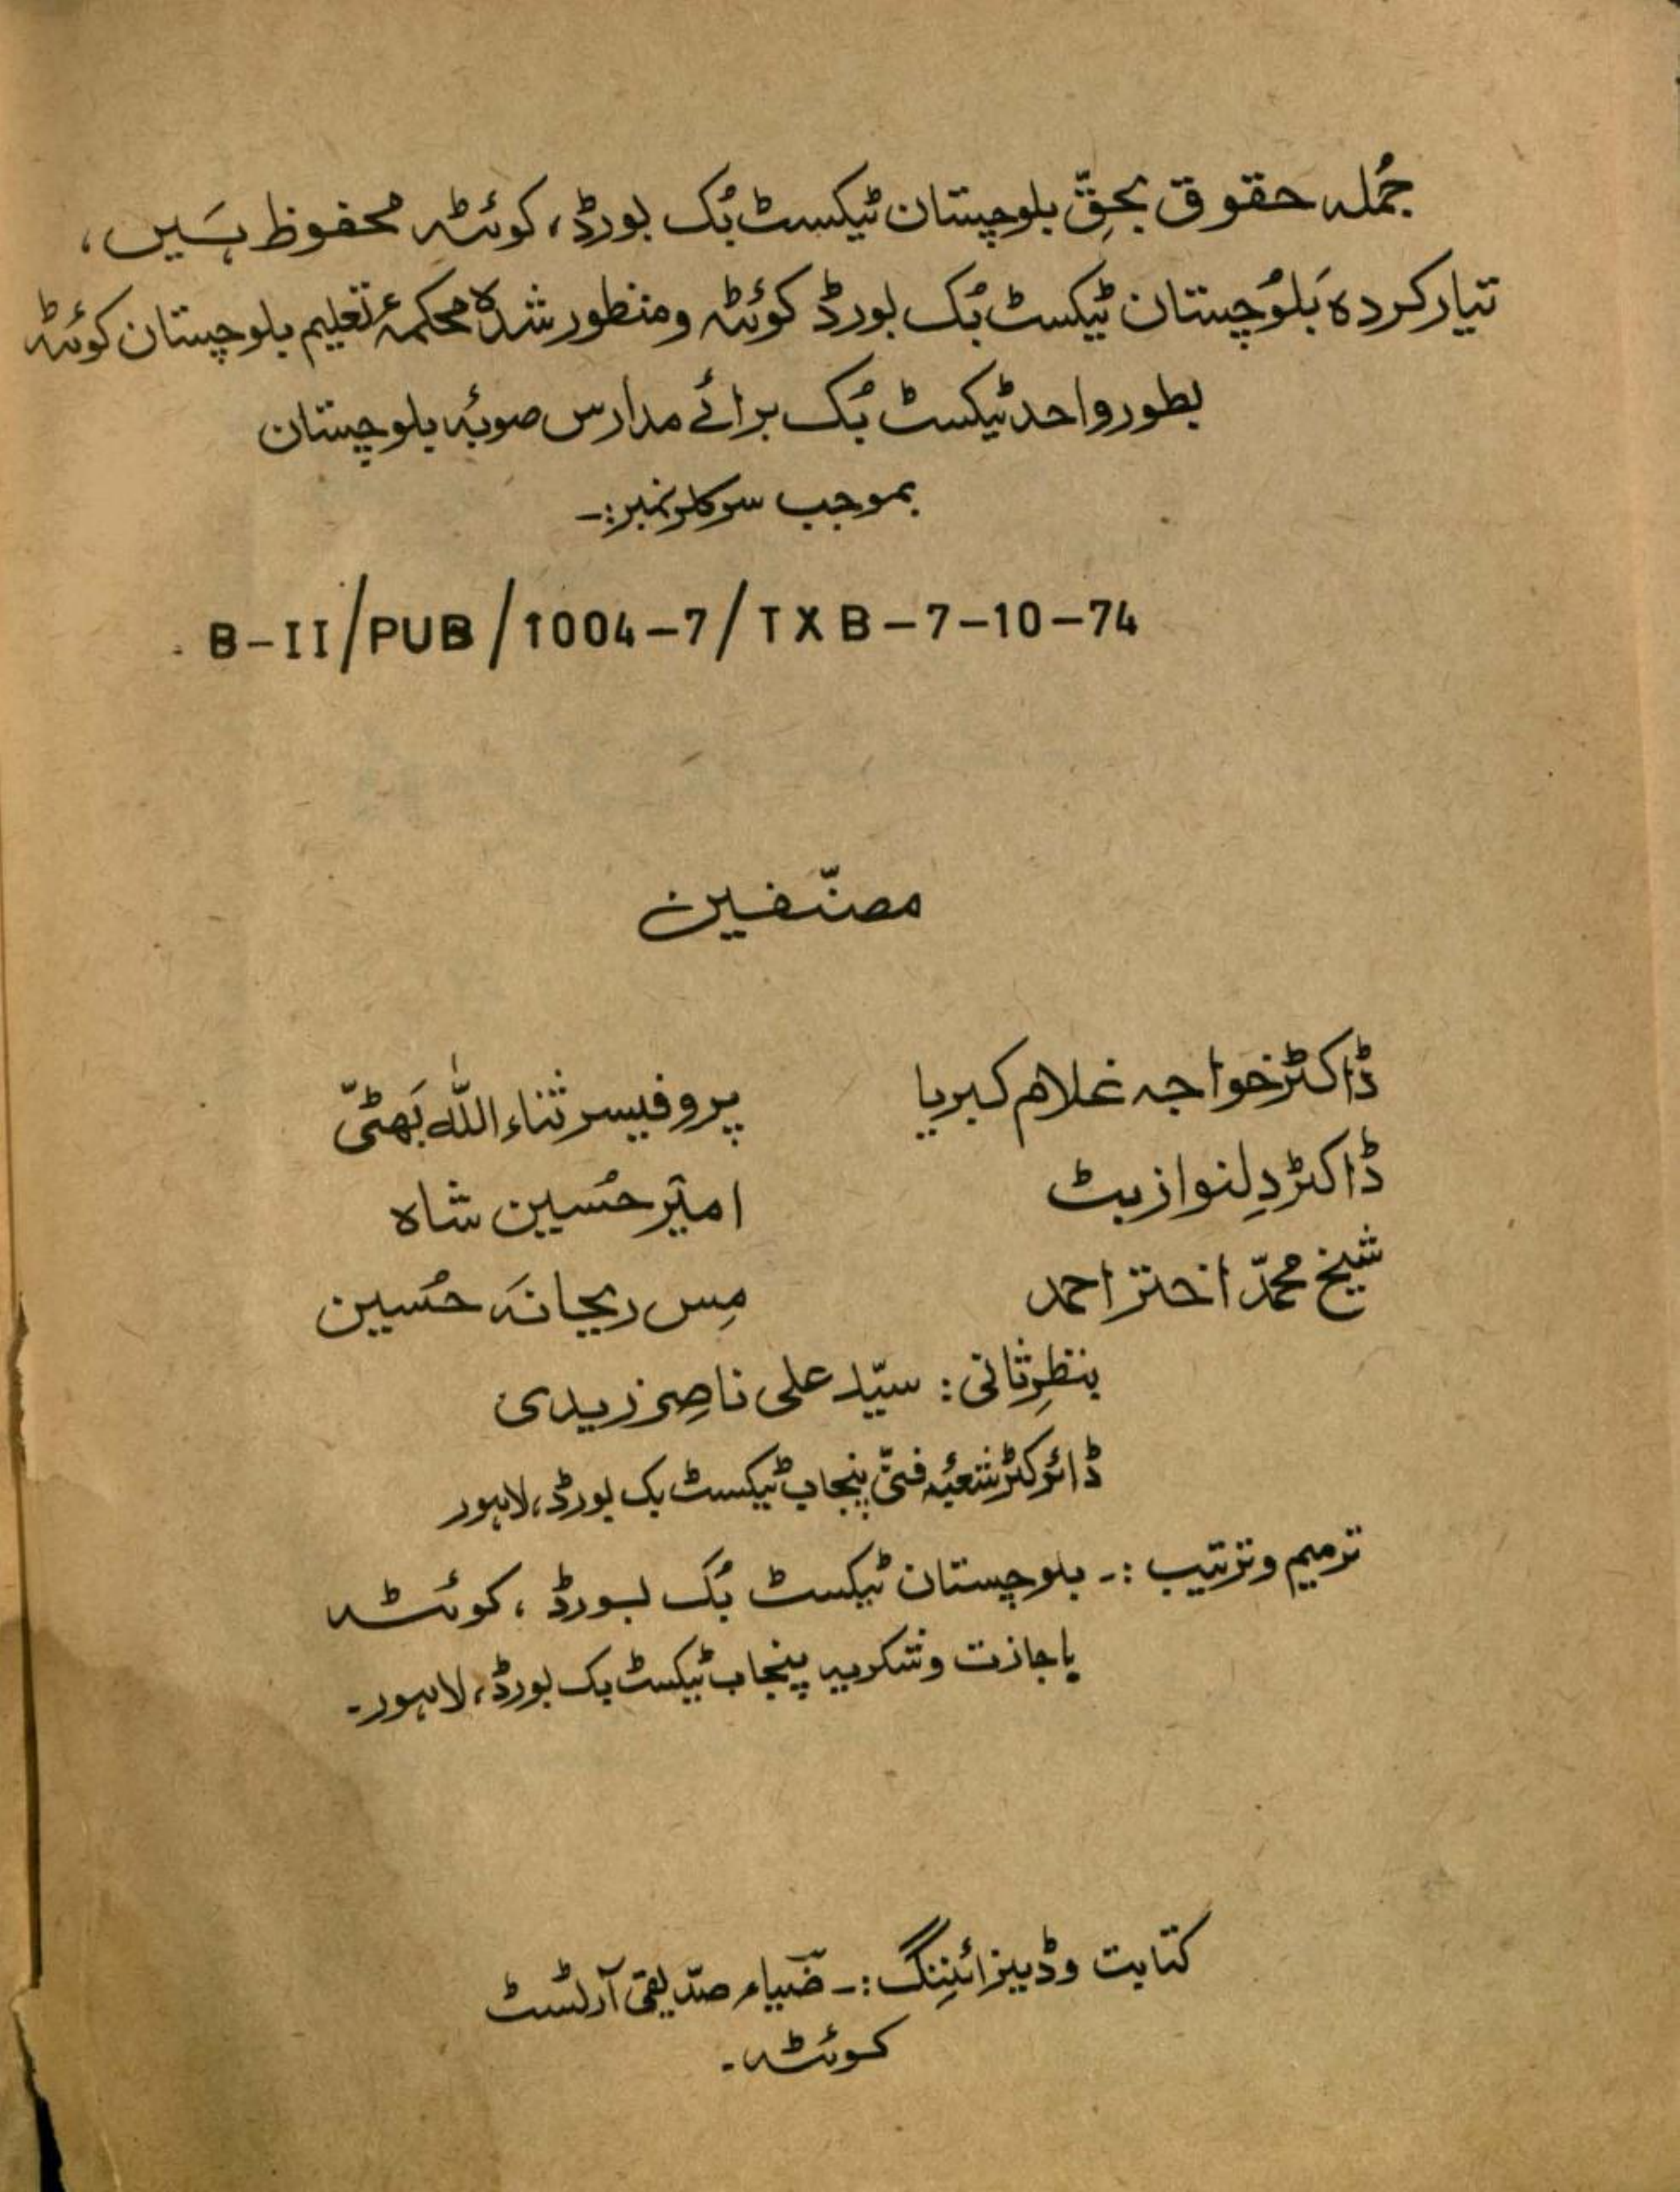 جُملہ حقوق بحقِّ بلوچستان ٹیکسٹ بُک بورڈ، کوئٹہ محفوظ ہَیں،
تیار کردہ بَلوُچستان ٹیکسٹ بُک بورڈ کوئٹہ و منظور شدہ محکمۂ تعلیم بلوچستان کوئٹہ
بطور واحد ٹیکسٹ بُک برائے مدارس صوبۂ بلوچستان
بموجب سرکلر نمبر:۔
B-II/PUB/1004-7/TXB-7-10-74
مصنّفین
ڈاکٹر خواجہ غلام کبریا
پروفیسر ثناء اللّٰہ بَھٹیّ
ڈاکٹر دِلنواز بٹ
امیَر حسُین شاہ
شیخ محمدّ اختر احمد
مِس ریحانہَ حسُین
بنظرِثانی: سیّد علی ناصِر زیدی
ڈائرکٹر شعبۂ فنیّ پنجاب ٹیکسٹ بک بورڈ، لاہور
ترمیم و ترتیب :۔ بلوچستان ٹیکسٹ بُک بورڈ ، کوئٹہ
باجازت و شکریہ پنجاب ٹیکسٹ بک بورڈ، لاہور۔
کتابت و ڈیزائیننِگ :۔ ضیاء صدّیقی آرٹسٹ
کوئٹہ۔